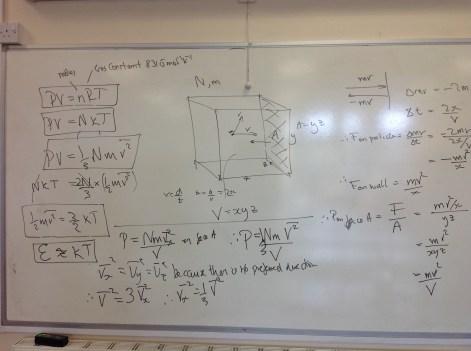 moles
Gas Constant 8.31 J mol⁻¹ K⁻¹
PV = nRT
PV = NkT
PV = 1/3 Nm v̄²
NkT = 2N/3 × (1/2 m v̄²)
1/2 m v̄² = 3/2 kT
E ≈ kT
N, m
v
A
y
A = yz
z
V = xyz
P = Nm v̄x²/V on face A ∴ P = 1/3 Nm v̄²/V
v̄x² = v̄y² = v̄z² because there is no preferred direction
∴ v̄² = 3 v̄x² ∴ v̄x² = 1/3 v̄²
mv
-mv
Δmv = -2m
δt = 2x/v
∴ F on particle = Δmv/δt = -2mv/2x/v
= -mv²/x
∴ F on wall = mv²/x
∴ P on face A = F/A = mv²/x/yz
= mv²/xyz
= mv²/V